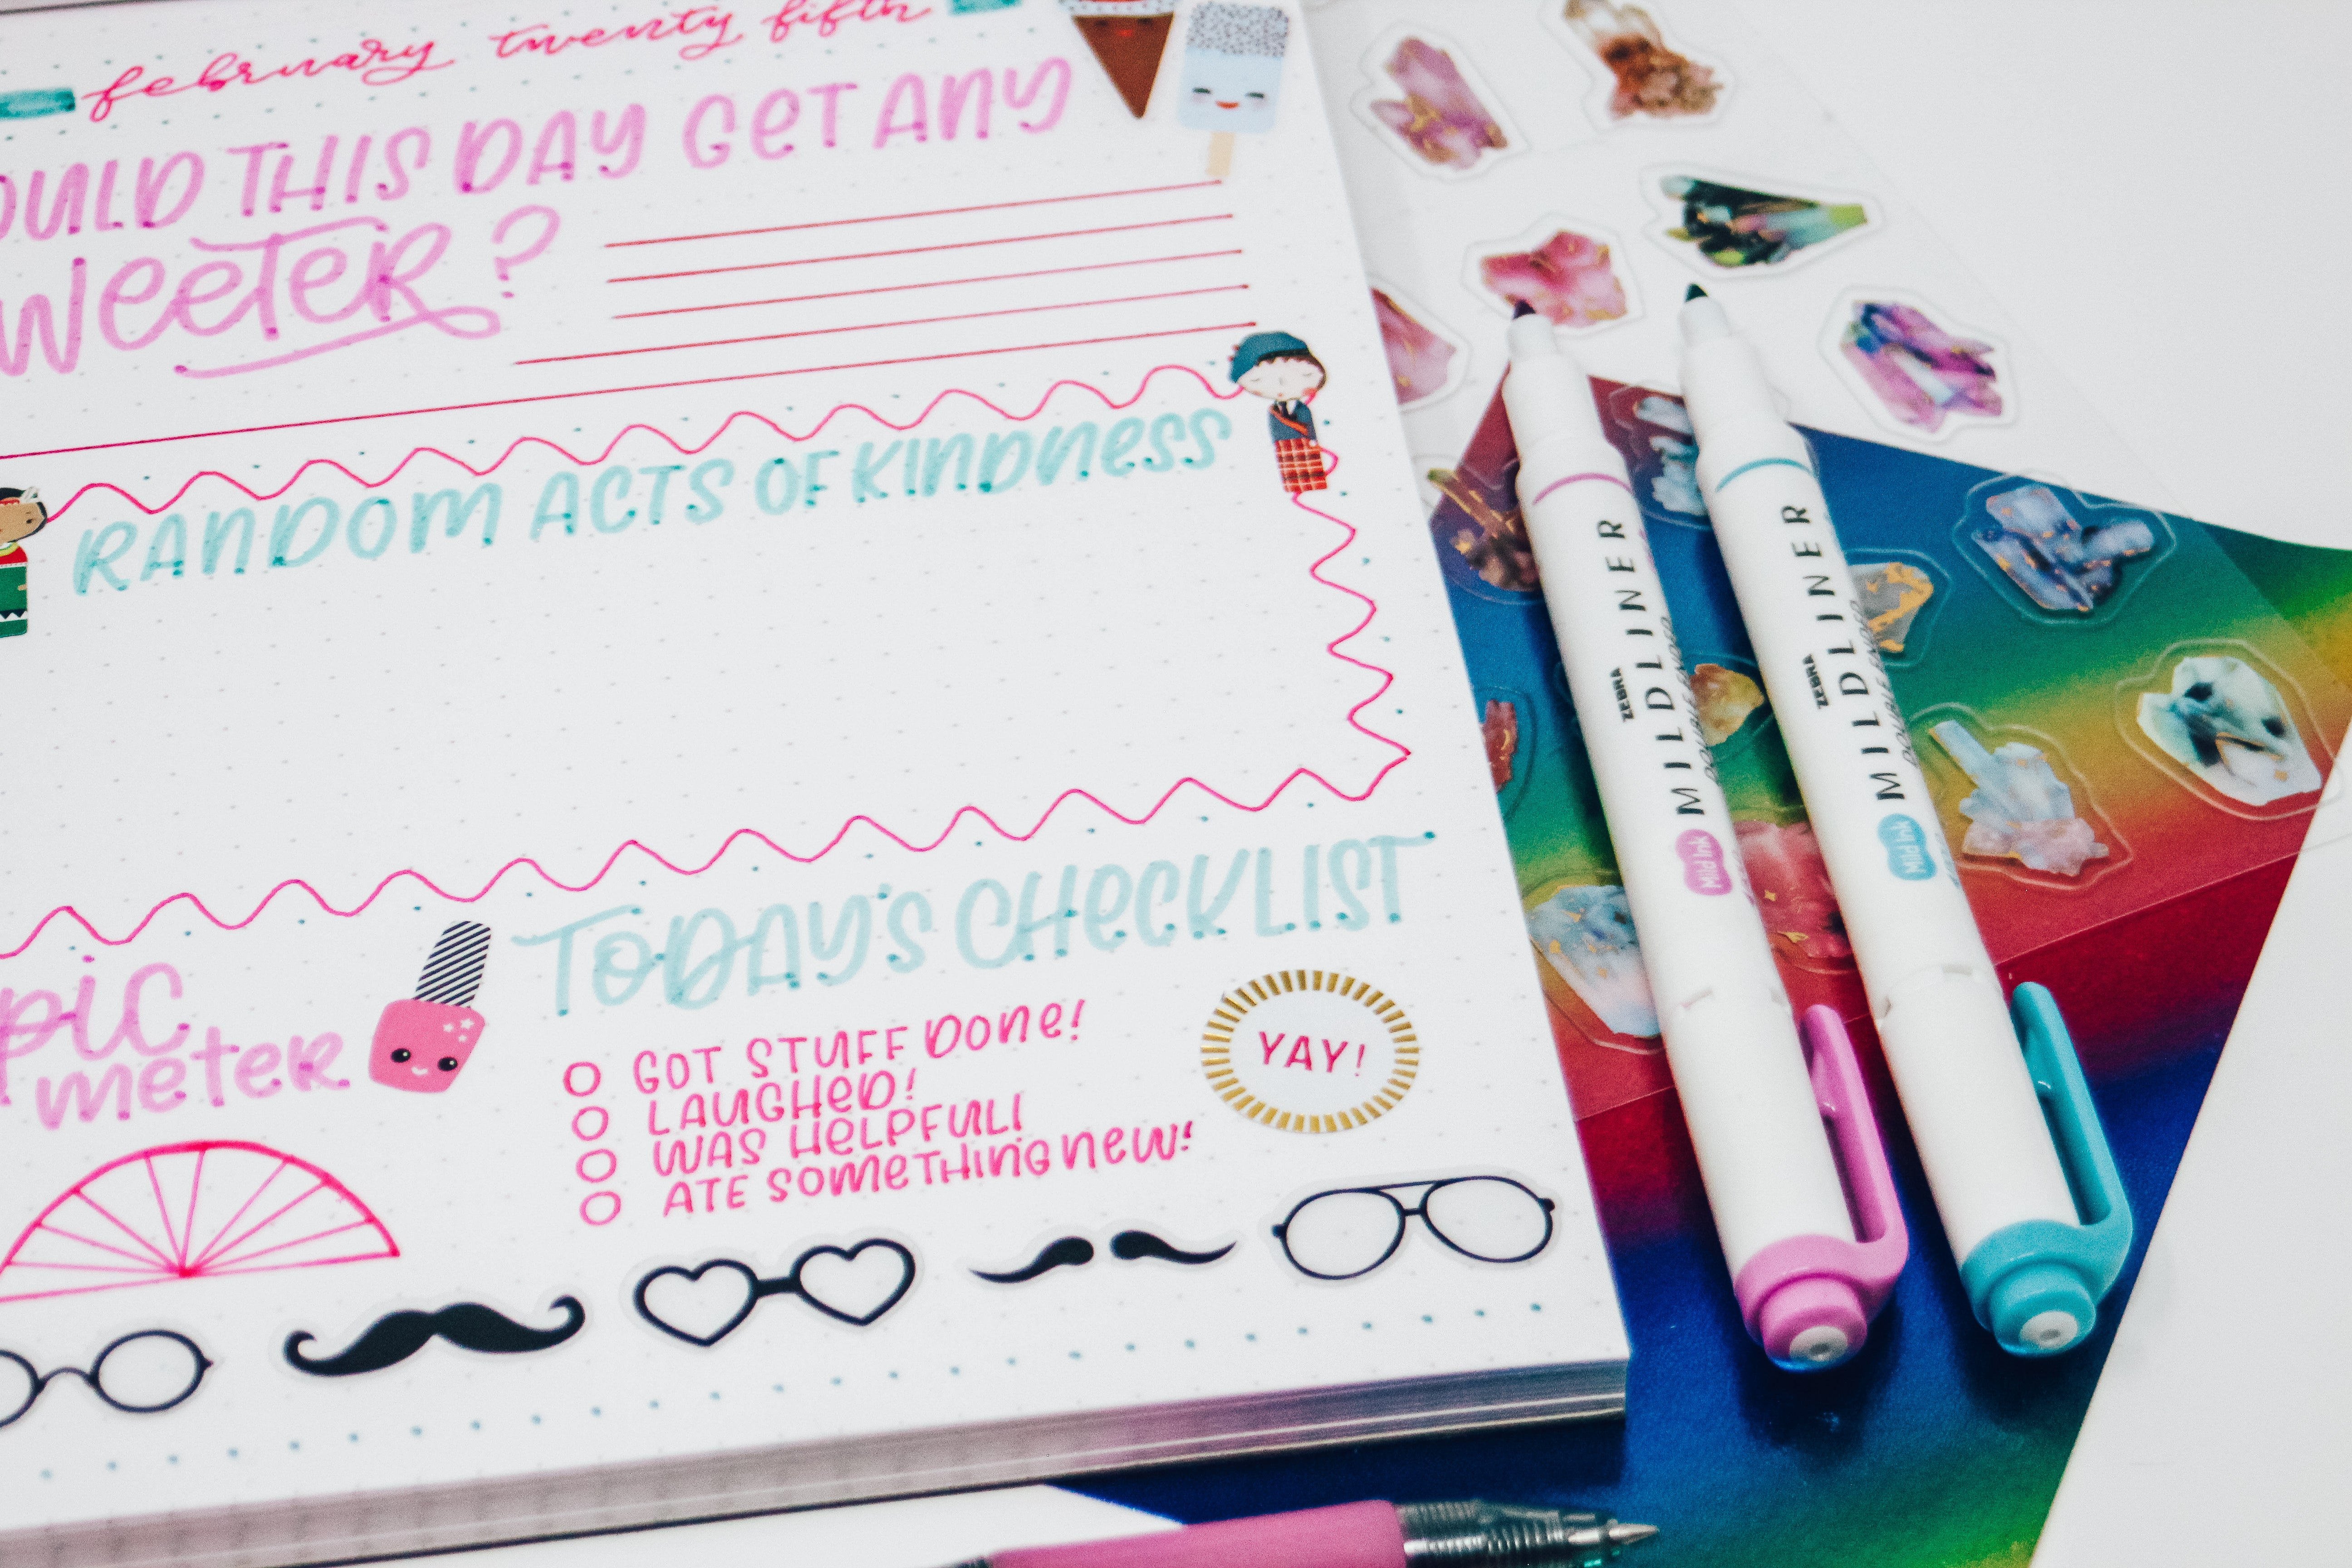 february twenty fifth
OULD THIS DAY GET ANY
WEETER?
RANDOM ACTS OF KINDNESS
PIC
METER
TODAY'S CHECKLIST
GOT STUFF DONE!
LAUGHED!
WAS HELPFUL!
ATE SOMETHING NEW!
YAY!
ZEBRA
MILDLINER
DOUBLE ENDED
Mild Ink
ZEBRA
MILDLINER
DOUBLE ENDED
Mild Ink